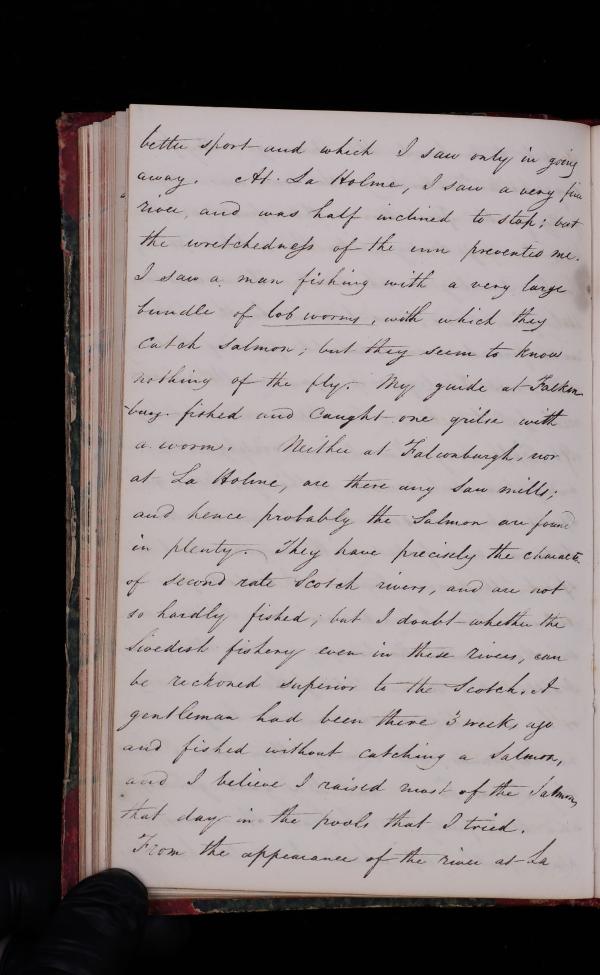 better sport and which I saw only in going
away. At La Holme, I saw a very fine
river, and was half inclined to stop; but
the wretchedness of the inn prevented me.
I saw a man fishing with a very large
bundle of lob worms, with which they
catch salmon; but they seem to know
nothing of the fly. My guide at Falken-
-burg fished and caught one grilse with
a worm. Neither at Falconburgh, nor
at La Holme, are there any saw mills;
and hence probably the Salmon are found
in plenty. They have precisely the character
of second rate Scotch rivers, and are not
so hardly fished; but I doubt whether the
Swedish fishery even in these rivers, can
be reckoned superior to the Scotch. A
gentleman had been there 3 weeks ago
and fished without catching a Salmon,
and I believe I raised most of the Salmon,
that day in the pools that I tried.
From the appearance of the river at La